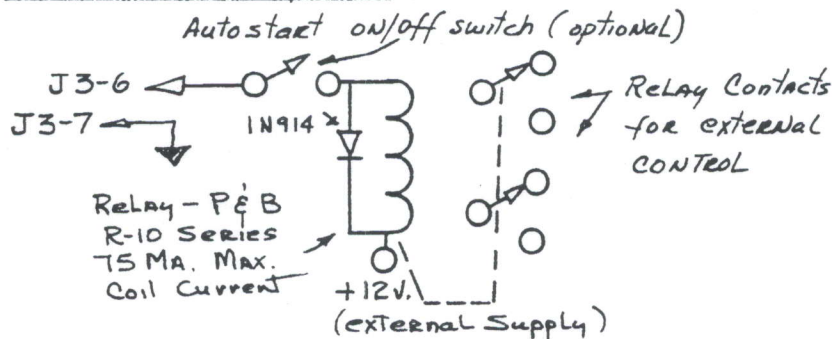 Autostart on/off switch (optional)
J3-6
J3-7
1N914
Relay Contacts
for external
control
Relay - P & B
R-10 Series
75 MA. Max.
Coil Current
+12v.
(external Supply)